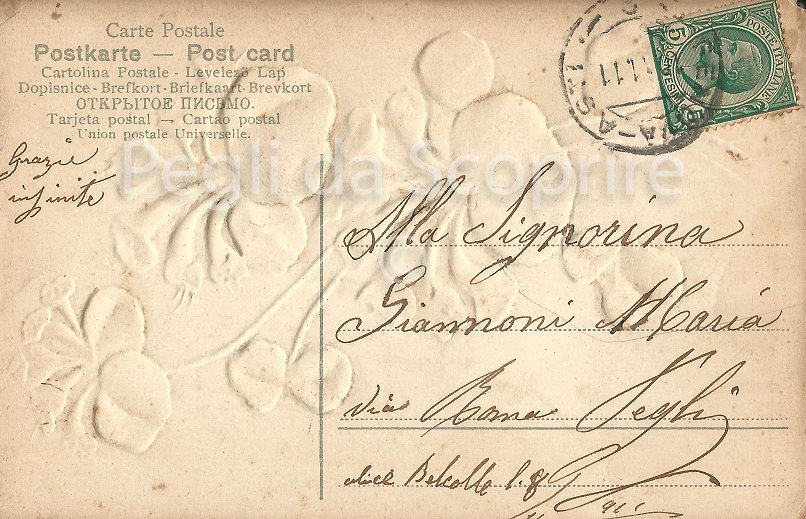 Carte Postale
Postkarte — Post card
Cartolina Postale - Levelező Lap
Dopisnice - Brefkort - Briefkaart - Brevkort
ОТКРЫТОЕ ПИСЬМО.
Tarjeta postal — Cartao postal
Union postale Universelle.
5
CENT
POSTE ITALIANE
11.11
Grazie
infinite
Pegli da Scoprire
Alla Signorina
Giannoni Maria
Via Roma Pegli